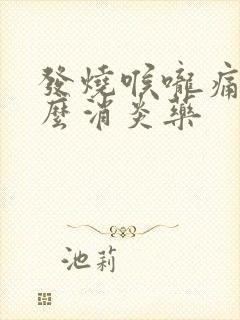 發燒喉嚨痛
麼消炎藥
池莉